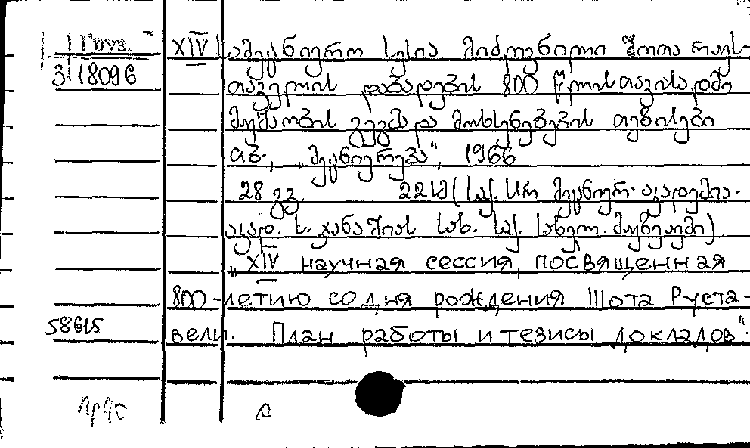 XIV სამეცნიერო სესია მიძღვნილი შოთა რუს-
3/18096
თაველის დაბადების 800 წლისთავისადმი
მუშაობის გეგმა და მოხსენებების თეზისები
თბ., „მეცნიერება“, 1966
28 გვ. (საქ. სსრ მეცნიერ. აკადემია.
აკად. ს. ჯანაშიას სახ. საქ. სახელ. მუზეუმი)
„XIV научная сессия, посвященная
800-летию со дня рождения Шота Руста-
58615
вели. План работы и тезисы докладов“.